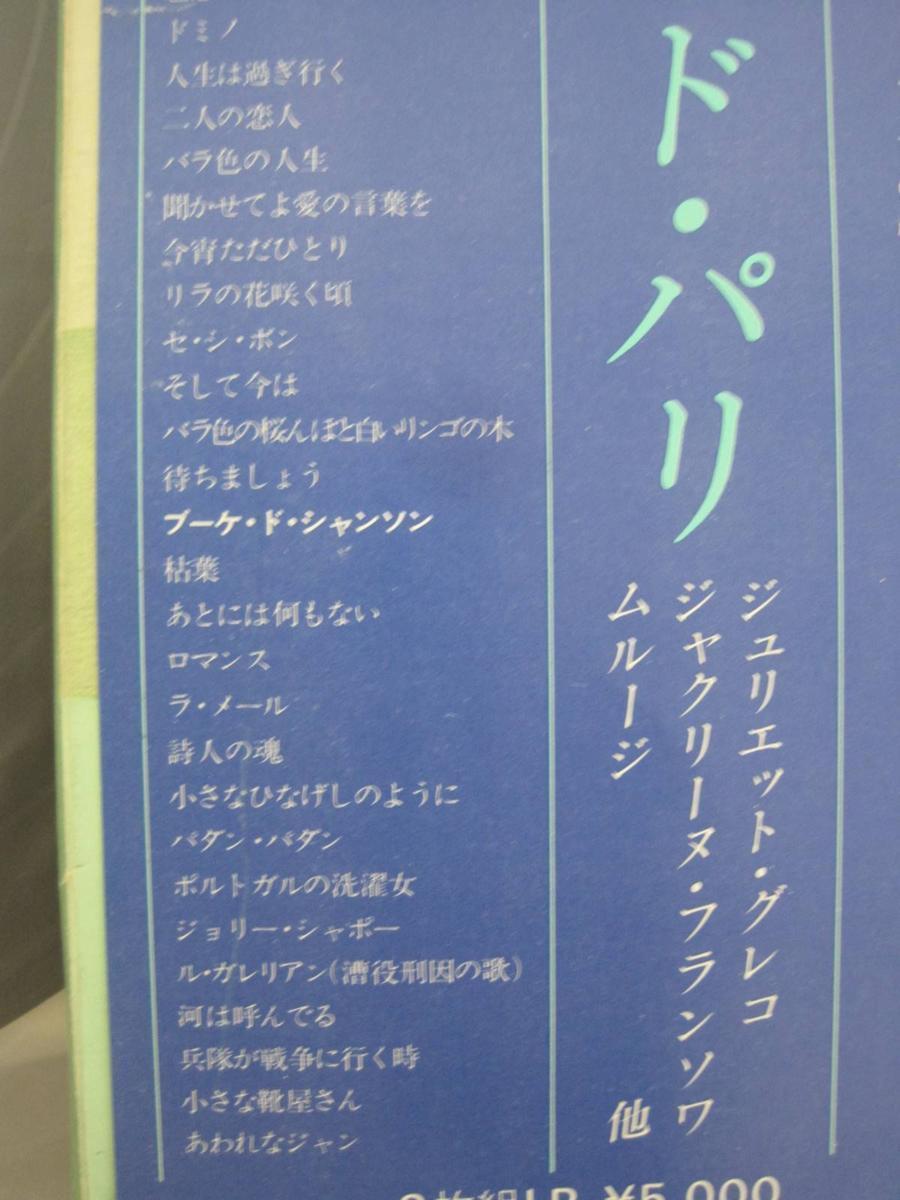 ドミノ
人生は過ぎ行く
二人の恋人
バラ色の人生
聞かせてよ愛の言葉を
今宵ただひとり
リラの花咲く頃
セ・シ・ボン
そして今は
バラ色の桜んぼと白いリンゴの木
待ちましょう
ブーケ・ド・シャンソン
枯葉
あとには何もない
ロマンス
ラ・メール
詩人の魂
小さなひなげしのように
パダン・パダン
ポルトガルの洗濯女
ジョリー・シャポー
ル・ガレリアン(漕役刑囚の歌)
河は呼んでる
兵隊が戦争に行く時
小さな靴屋さん
あわれなジャン
ド・パリ
ジュリエット・グレコ
ジャクリーヌ・フランソワ
ムルージ 他
枚組LP ¥5,000